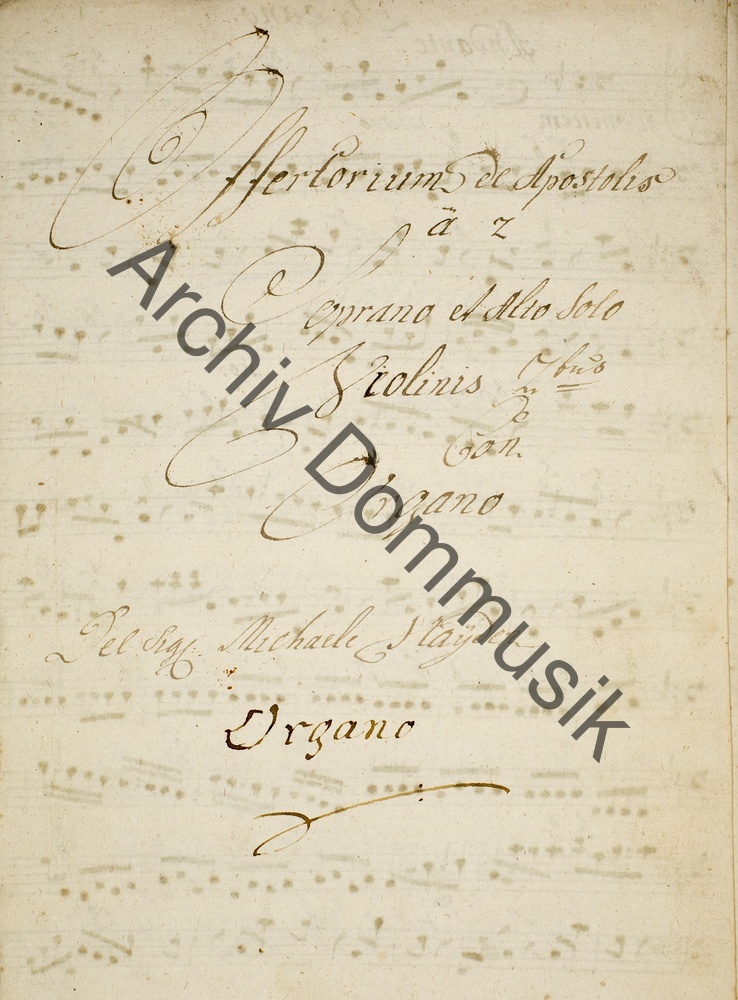 Offertorium de Apostolis
à 2
Soprano et Alto Solo
Violinis
Con
Organo
Del Sig. Michaele Hayden
Organo
Archiv Dommusik
Andante